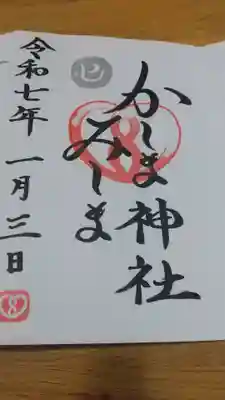 かしま神社
みしま
令和七年 一月三日